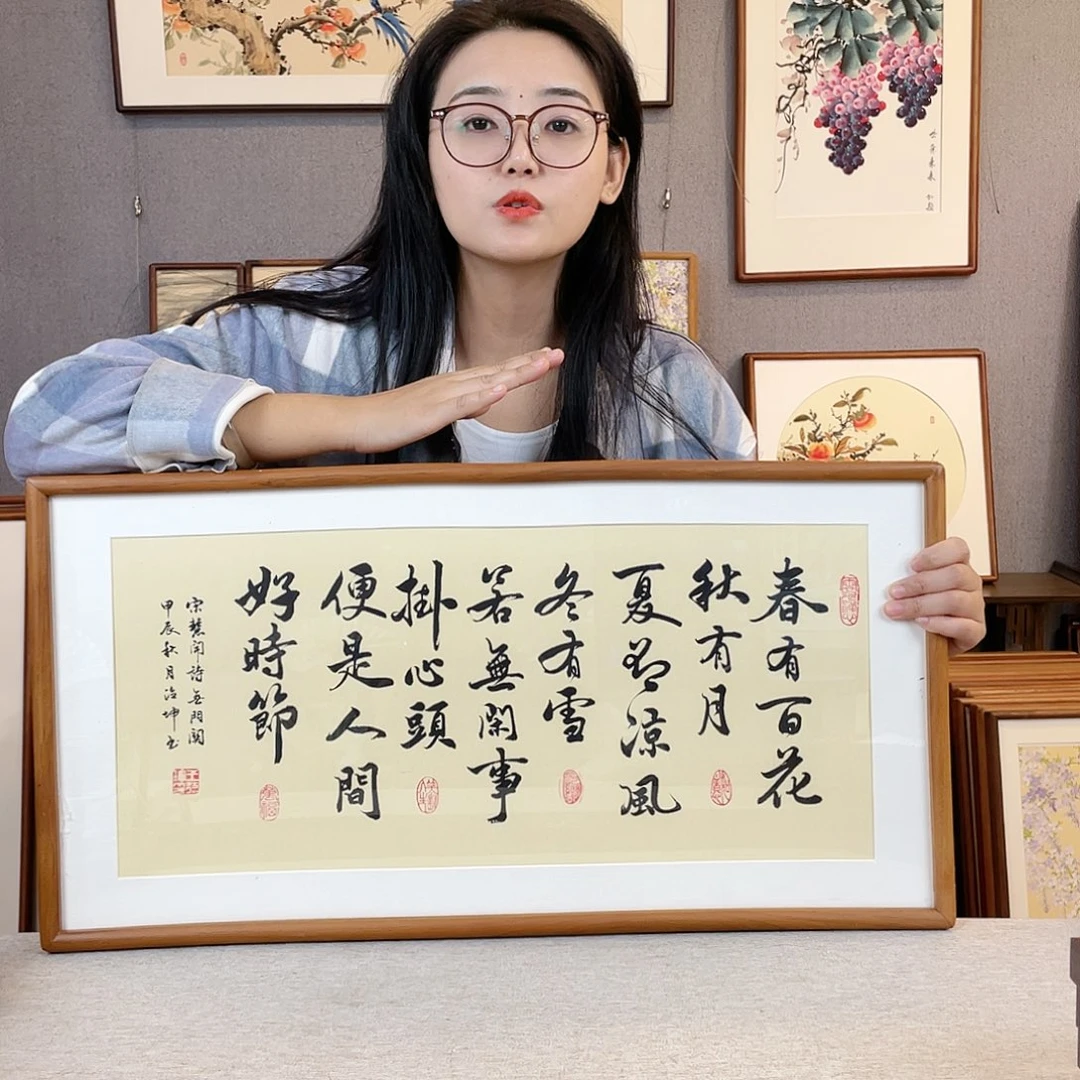 春有百花
秋有月
夏有涼風
冬有雪
若無閑事
掛心頭
便是人間
好時節
宋慧開詩無門關
甲辰秋月治坤书
紫氣東來